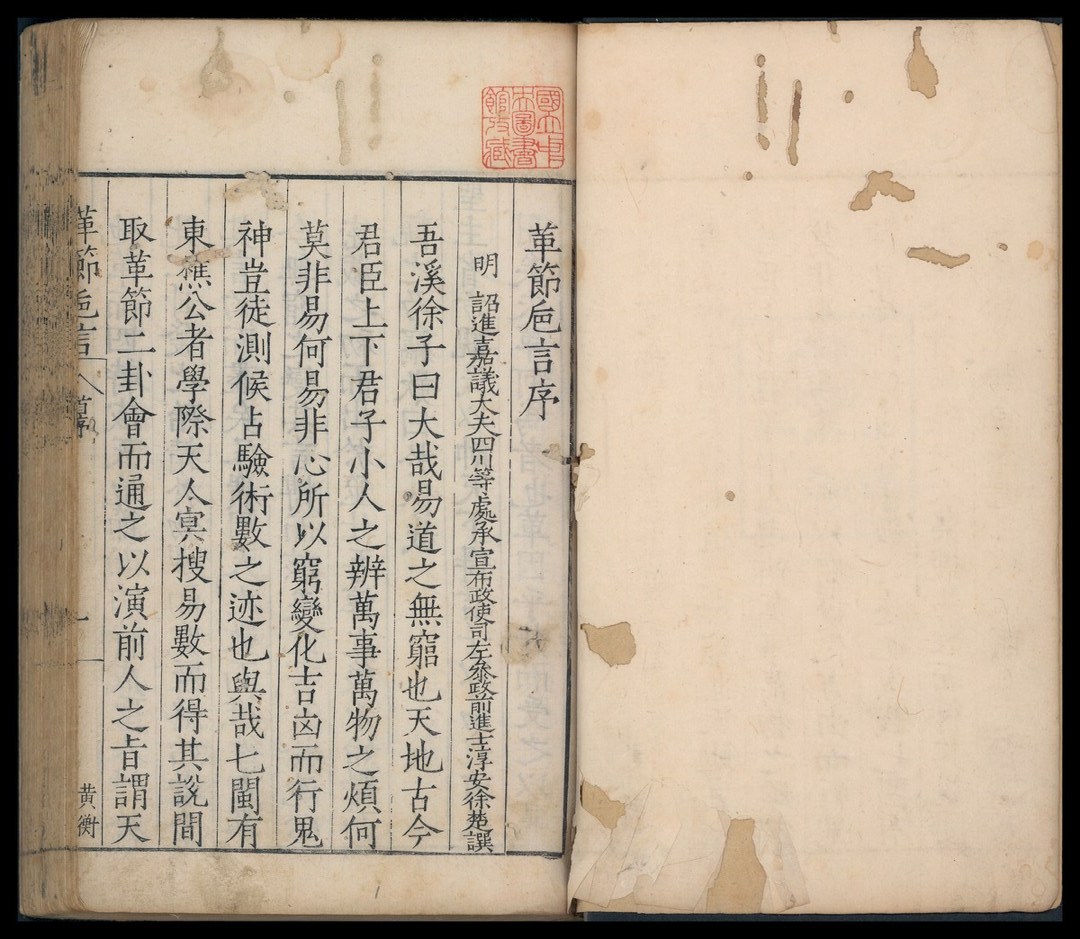 國立中
央圖書
館收藏
革節巵言序
明 詔進嘉議大夫四川等處承宣布政使司左叅政前進士淳安徐楚譔
吾溪徐子曰大哉易道之無窮也天地古今
君臣上下君子小人之辨萬事萬物之煩何
莫非易何易非心所以窮變化吉凶而行鬼
神豈徒測候占驗術數之迹也與哉七閩有
東樵公者學際天人冥搜易數而得其說間
取革節二卦會而通之以演前人之旨謂天
革節巵言 序 一 黄衡